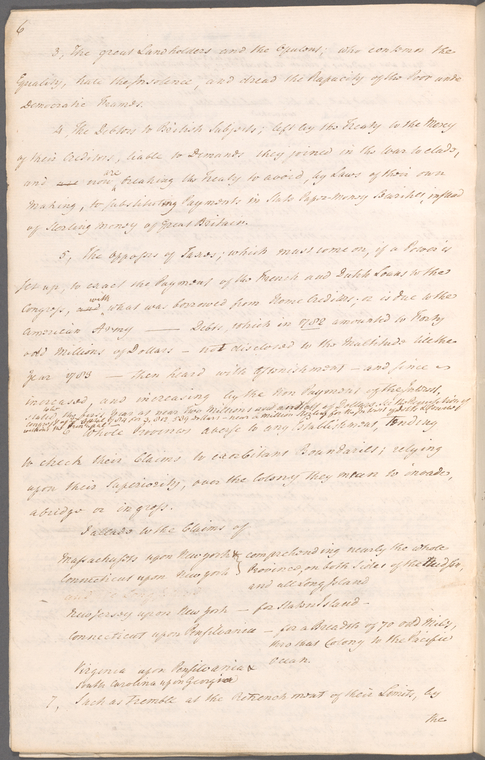 6
3, The great Landholders and the Opulent; who contemn the
Equality, hate the Insolence, and dread the Rapacity of the Poor under
Democratic Frames.
4. The Debtors to British Subjects; left by the Treaty to the Mercy
of their Creditors, liable to Demands they joined in the War to elude,
and are now breaking the Treaty to avoid, by Laws of their own
making, to substituting Payments in State Paper-Money Barriers, instead
of Sterling money of Great Britain.
5, The Opposers of Taxes; which must come on, if a Power is
set up, to exact the Payment of the French and Dutch Loans to the
Congress, with what was borrowed from Home Creditors, or is due to the
American Army — Debts, which in 1782 amounted to Forty
odd Millions of Dollars — not disclosed to the Multitude till the
Year 1783 — then heard with Astonishment — and since
increased, and increasing by the Non Payment of the Interest,
stated this year at near Two Millions and
Whole Provinces averse to any Establishment, tending
to check their Claims to exorbitant Boundaries; relying
upon their Superiority, over the Colony they mean to invade,
abridge or ingross.
I allude to the Claims of
Massachusetts upon New York &
Connecticut upon New York
comprehending nearly the whole
Province, on both Sides of the Hudson,
and all Long Island
New Jersey upon New York — for Staten Island —
Connecticut upon Pensilvania — for a Breadth of 70 odd Miles,
thro that Colony to the Pacific
Ocean.
Virginia upon Pensilvania &
South Carolina upon Georgia
7, Such as tremble at the Retrenchment of their Limits, by
the